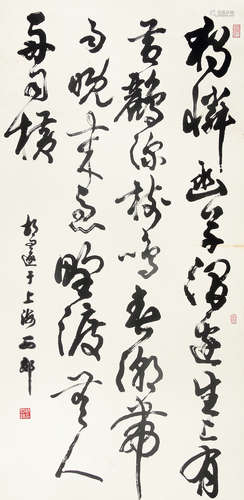 獨憐幽草澗邊生上有
黄鸝深樹鳴春潮帶
雨晚来急野渡無人
舟自横
胡问遂于上海